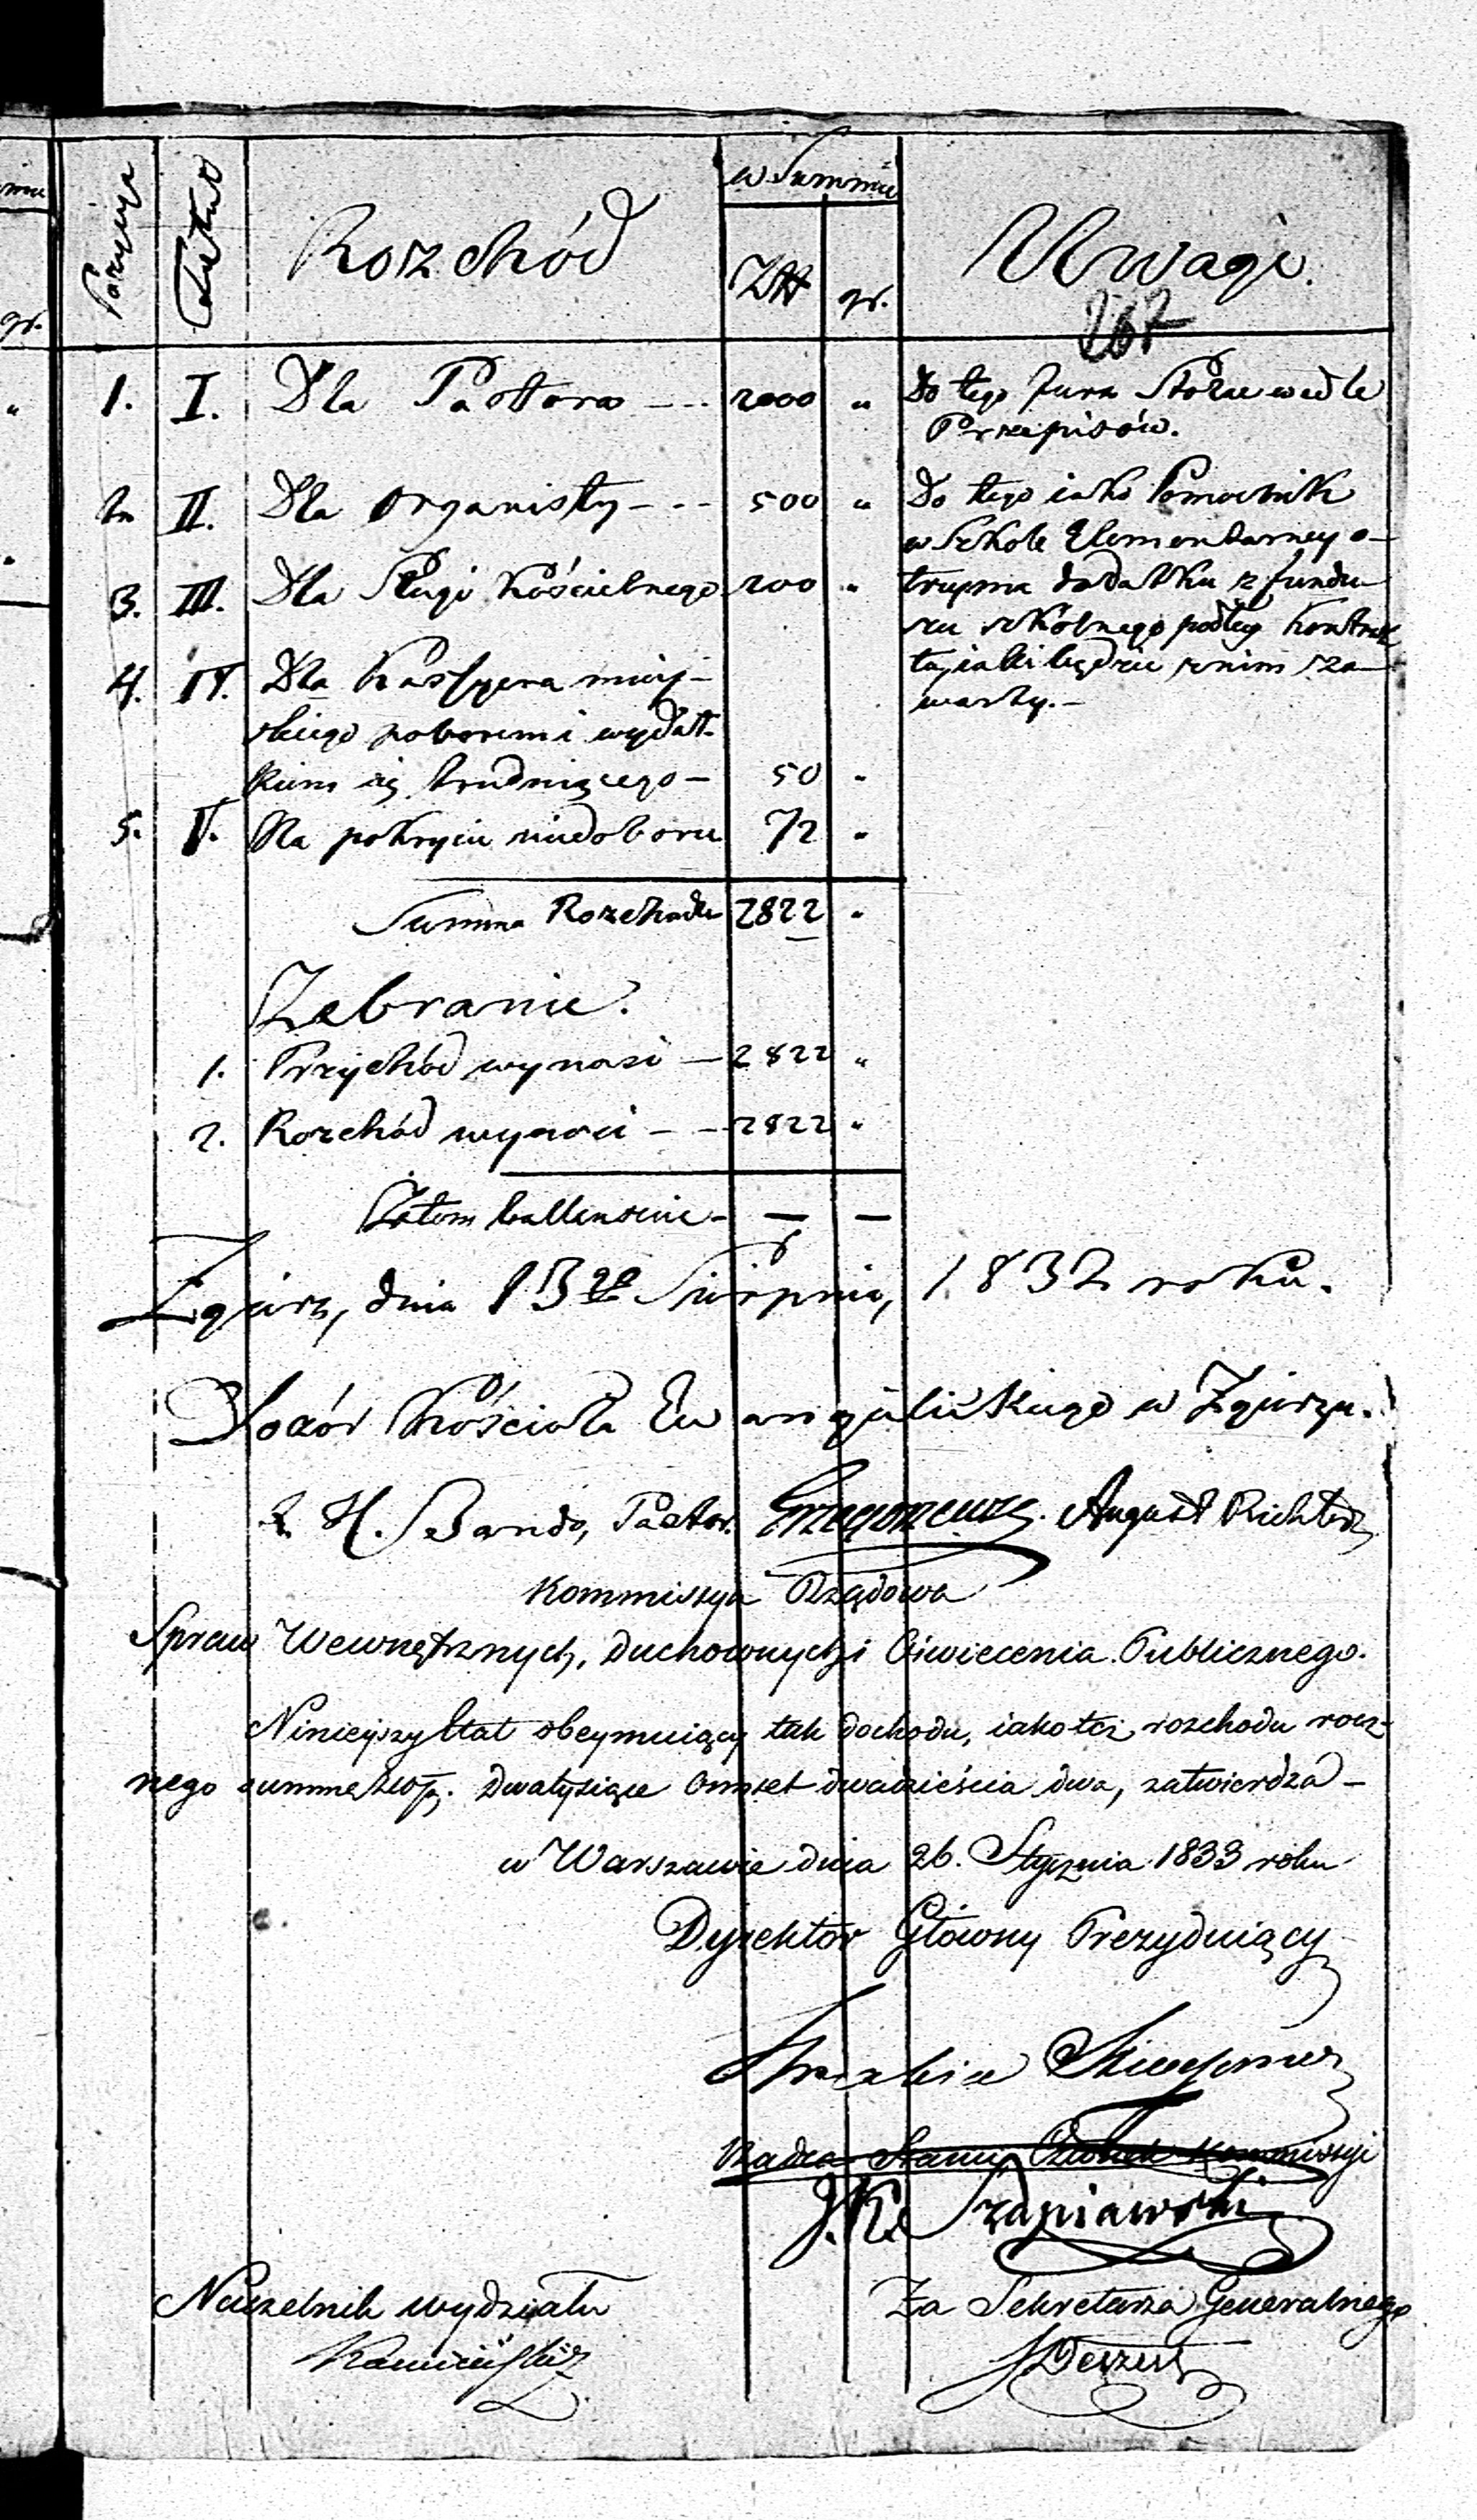 w Summie
Pozycya Tituł Rozchód Złł gr. Uwagi.
267
1. I. Dla Pastora --- 2000 " Do tego Jura Stolae wedle
Przepisów.
2. II. Dla Organisty --- 500 " Do tego iako Pomocnik
w Szkole Elementarney o-
3. III. Dla Sługi Kościelnego 200 " trzyma dodatku z fundu-
szu szkólnego podług Kontrak-
4. IV. Dla Kassyera miey- tu, iaki będzie z nim za-
warty.-
skiego poborem i wydat-
kiem się trudniącego - 50 "
5. V. Na pokrycie niedoboru 72 "
Summa Rozchodu 2822 "
Zebranie.
1. Przychód wynosi - 2822 "
2. Rozchód wynosi - - 2822 "
Zatem ballansuie - — —
Zgierz, dnia 13go Sierpnia, 1832 roku.
Dozór Kościoła Ewangielickiego w Zgierzu.
H. Bando, Pastor. Grzegorzewski. August Richter
Kommissya Rządowa
Spraw Wewnętrznych, Duchownych i Oświecenia Publicznego.
Ninieyszy Etat obeymuiący tak dochodu, iako też rozchodu rocz-
nego summę złp. Dwatysiące Ośmset dwadzieścia dwa, zatwierdza -
w Warszawie dnia 26. Stycznia 1833 roku
Dyrektor Główny Prezyduiący
Radca Stanu, Członek Kommissyi
J. K. Szaniawski
Naczelnik wydziału Za Sekretarza Generalnego
Kamieński